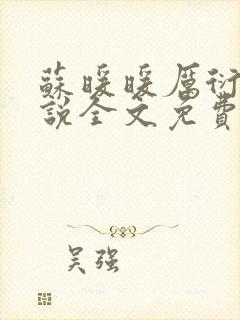 蘇暖暖厲衍
說全文免費
吴強